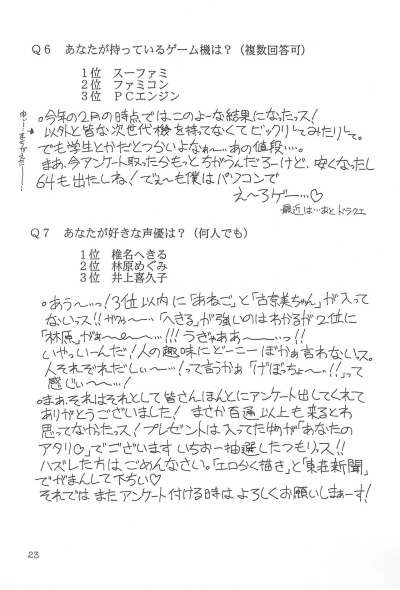 Q6 あなたが持っているゲーム機は？（複数回答可）
1位 スーファミ
2位 ファミコン
3位 PCエンジン
。今年の2月の時点ではこのよーな結果になったっス！
以外と皆な次世代機を持ってなくてビックリしてみたりして。
でも学生とかだとつらいよなぁ〜…あの値段‥‥。
まぁ、今アンケート取ったらもっとちがうんだろーけど、安くなったし
64も出たしね！でぇ〜も僕はパソコンで
え〜ろゲー…♡
最近は…おとドラクエ
Q7 あなたが好きな声優は？（何人でも）
1位 椎名へきる
2位 林原めぐみ
3位 井上喜久子
。あう〜…っ！3位以内に「あねご」と「古奈美ちゃん」が入って
ないっス!!「へきる」が強いのはわかるが2位に
「林原」がぁ〜e〜…!!!うぎゃああ〜〜…っ!!
いやっいーんだ！人の趣味にどーこーぼかぁ言わないス。
人それぞれだしぃ〜…！って言うかぁ「げぼちょ〜。!!」って
感じぃ〜〜…！
。まぁ、それはそれとして皆さんほんとにアンケート出してくれて
ありがとうございました！まさか百通以上も来るとわ
思ってなかったス！プレゼントは入ってた物が「あなたの
アタリ♡」でございます いちおー抽選したつもりっス!!
ハズレた方はごめんなさい。「エロらく描き」と「東荘新聞」
でがまんして下ちい♡
それでは またアンケート付ける時は よろしくお願いしまぁーす！
23